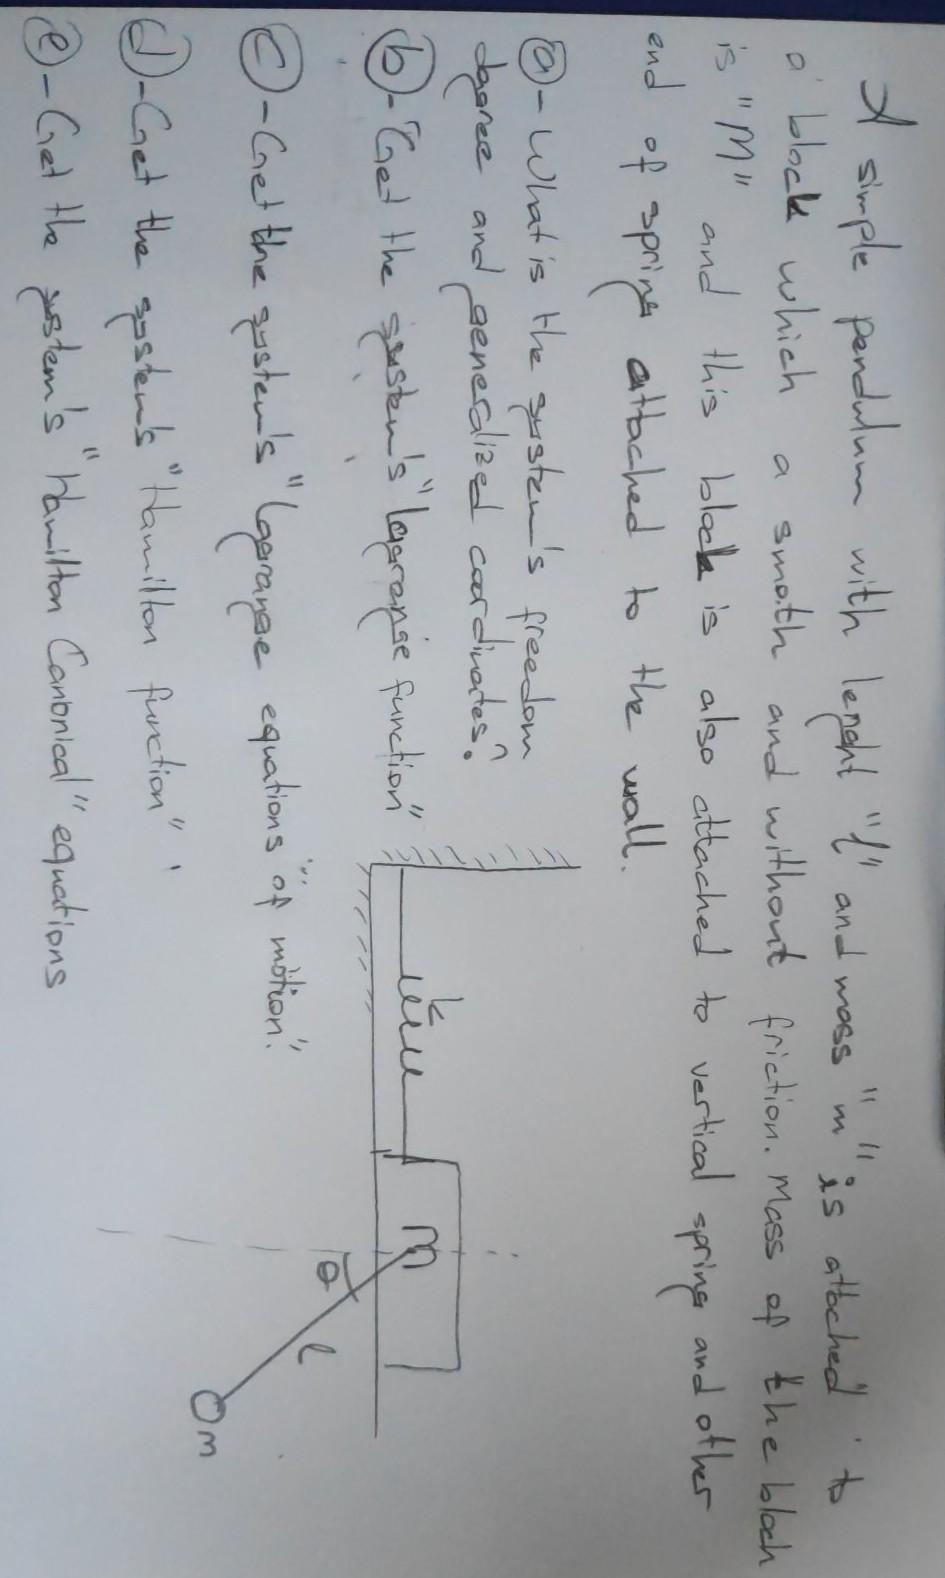 A simple pendulum with lenght "l" and mass "m" is attached to
a block which a smoth and without friction. Mass of the bloch
is "M" and this block is also attached to vertical spring and other
end of spring attached to the wall.
a- What is the system's freedom
degree and generalized coordinates?
b- Get the system's "lagrange function"
c- Get the system's "lagrange equations" of motion".
d- Get the system's "Hamilton function"
e- Get the system's "Hamilton Canonical" equations
k
M
θ
l
m